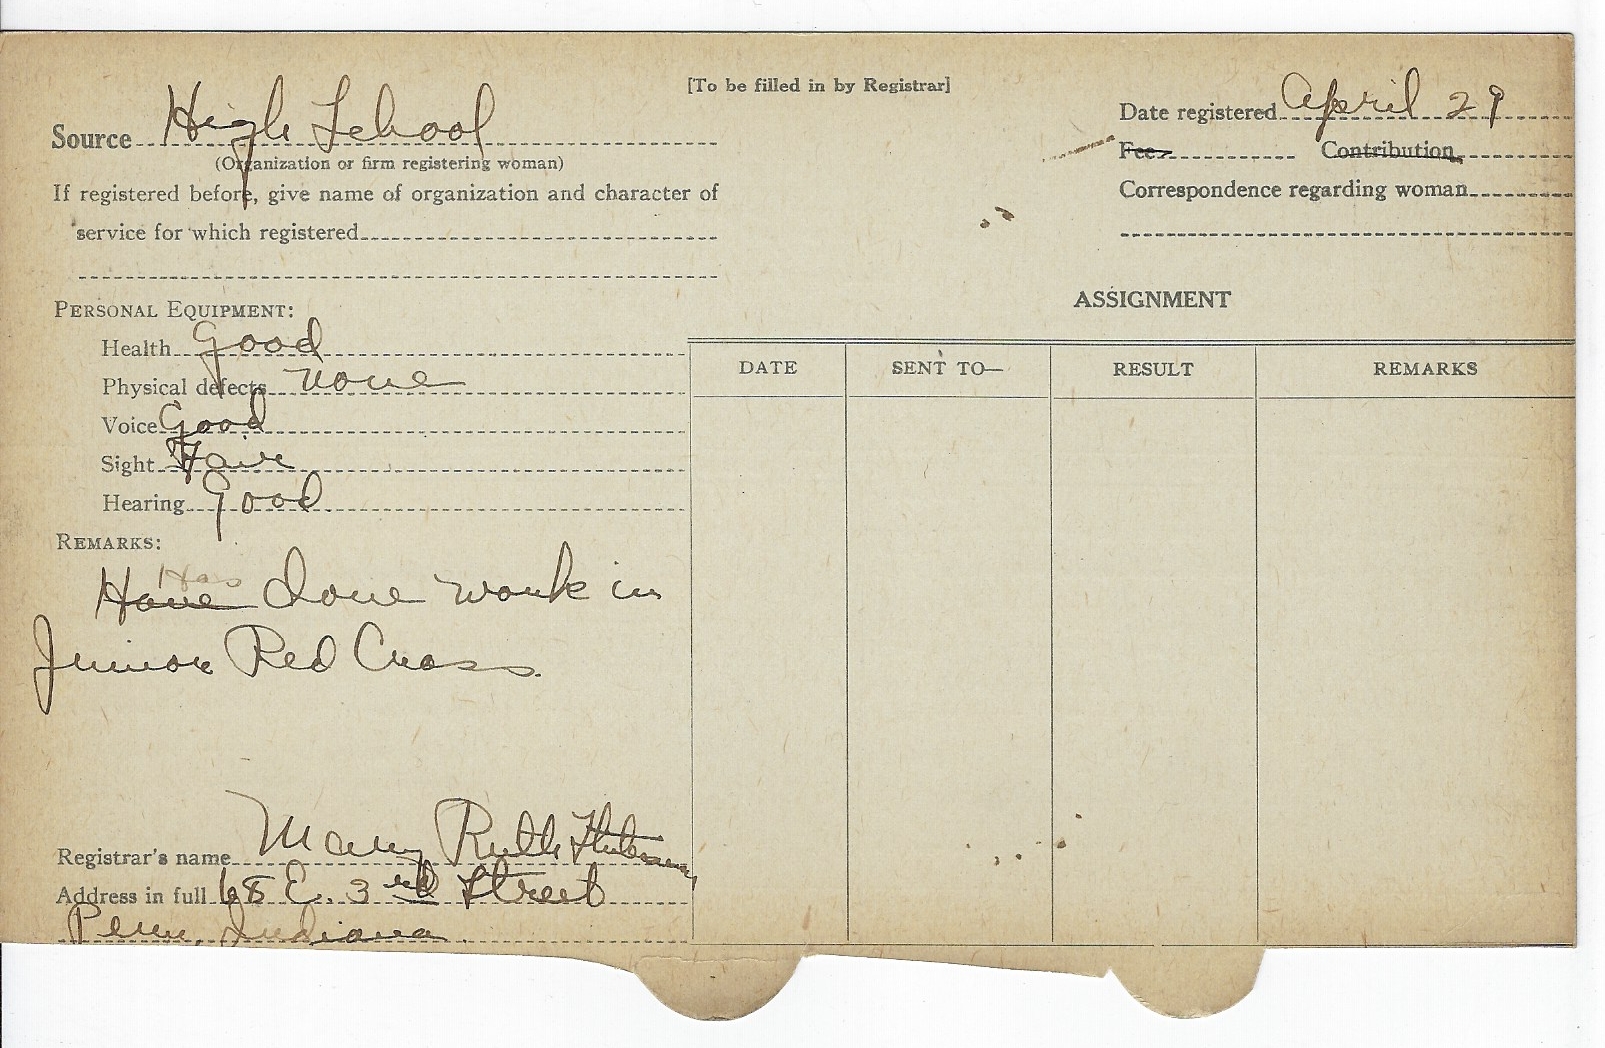 [To be filled in by Registrar]
Source High School
(Organization or firm registering woman)
If registered before, give name of organization and character of
service for which registered
Date registered April 29
Fee Contribution
Correspondence regarding woman
PERSONAL EQUIPMENT:
Health Good
Physical defects none
Voice Good
Sight Fair
Hearing Good
REMARKS:
Has
Have done work in
Junior Red Cross.
Registrar's name Mary Ruth
Address in full 68 E. 3rd Street
Peru, Indiana
ASSIGNMENT
DATE SENT TO— RESULT REMARKS